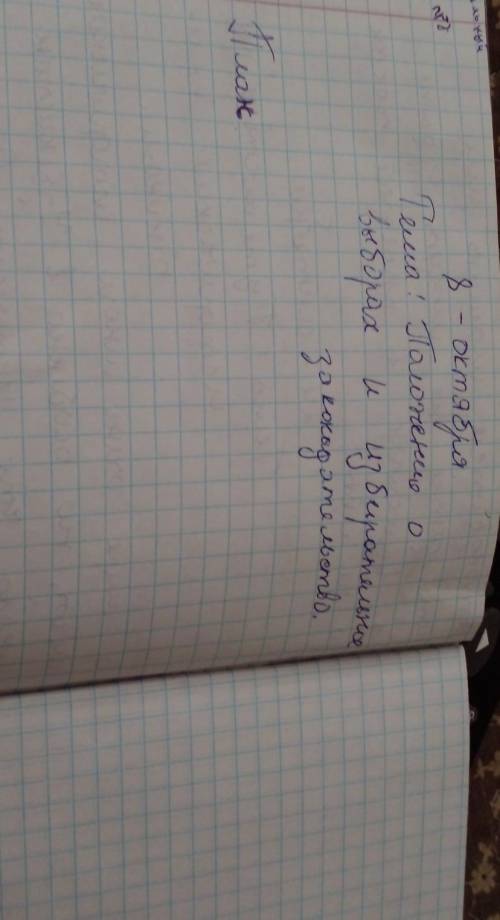 №2
8 - октября
Тема: Положению о
выборах и избирательное
законодательство.
План